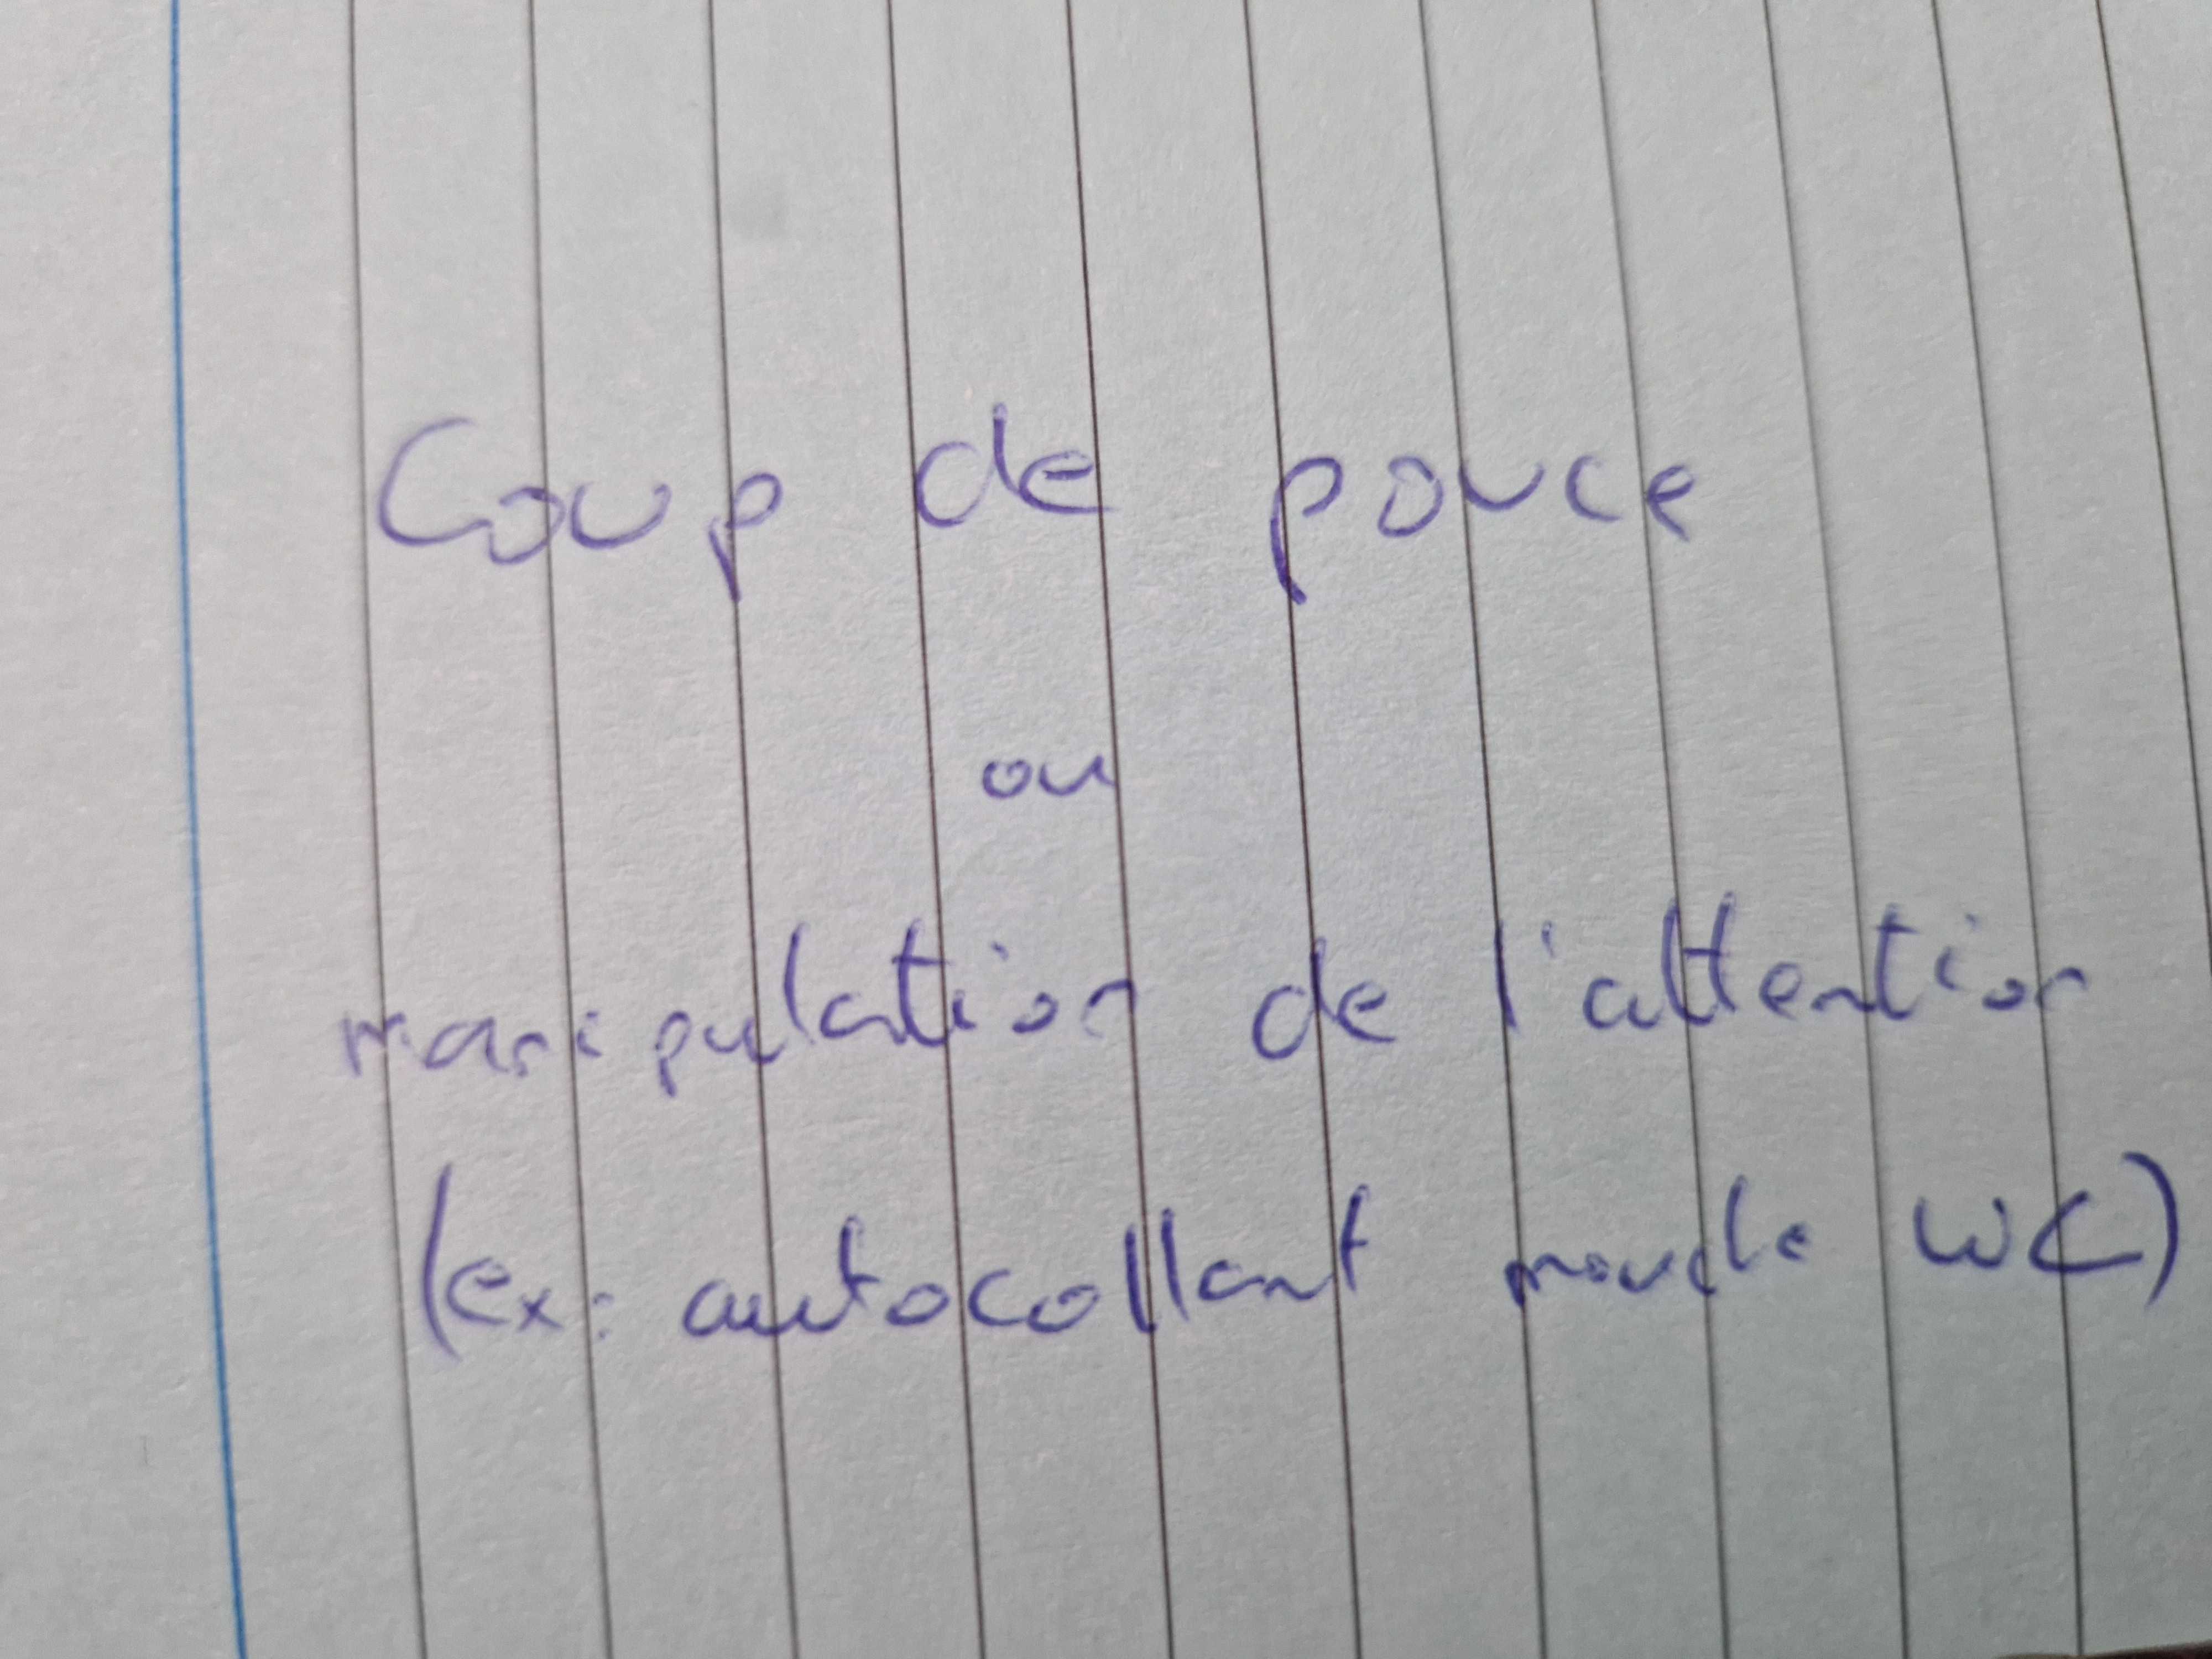 Coup de pouce
ou
manipulation de l'attention
(ex: autocollant mouche WC)